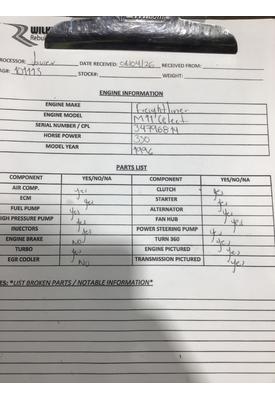 WILK
Rebui
ROCESSOR: Javier DATE RECEIVED: 04/04/26 RECEIVED FROM:
AG#: 101113 STOCK#: WEIGHT:
ENGINE INFORMATION
ENGINE MAKE Freightliner
ENGINE MODEL M11 Celect
SERIAL NUMBER / CPL 34796814
HORSE POWER 330
MODEL YEAR 1996
PARTS LIST
COMPONENT YES/NO/NA COMPONENT YES/NO/NA
AIR COMP. yes CLUTCH yes
ECM yes STARTER yes
FUEL PUMP yes ALTERNATOR yes
HIGH PRESSURE PUMP yes FAN HUB yes
INJECTORS yes POWER STEERING PUMP yes
ENGINE BRAKE NO TURN 360 yes
TURBO yes ENGINE PICTURED yes
EGR COOLER NO TRANSMISSION PICTURED yes
ES: *LIST BROKEN PARTS / NOTABLE INFORMATION*